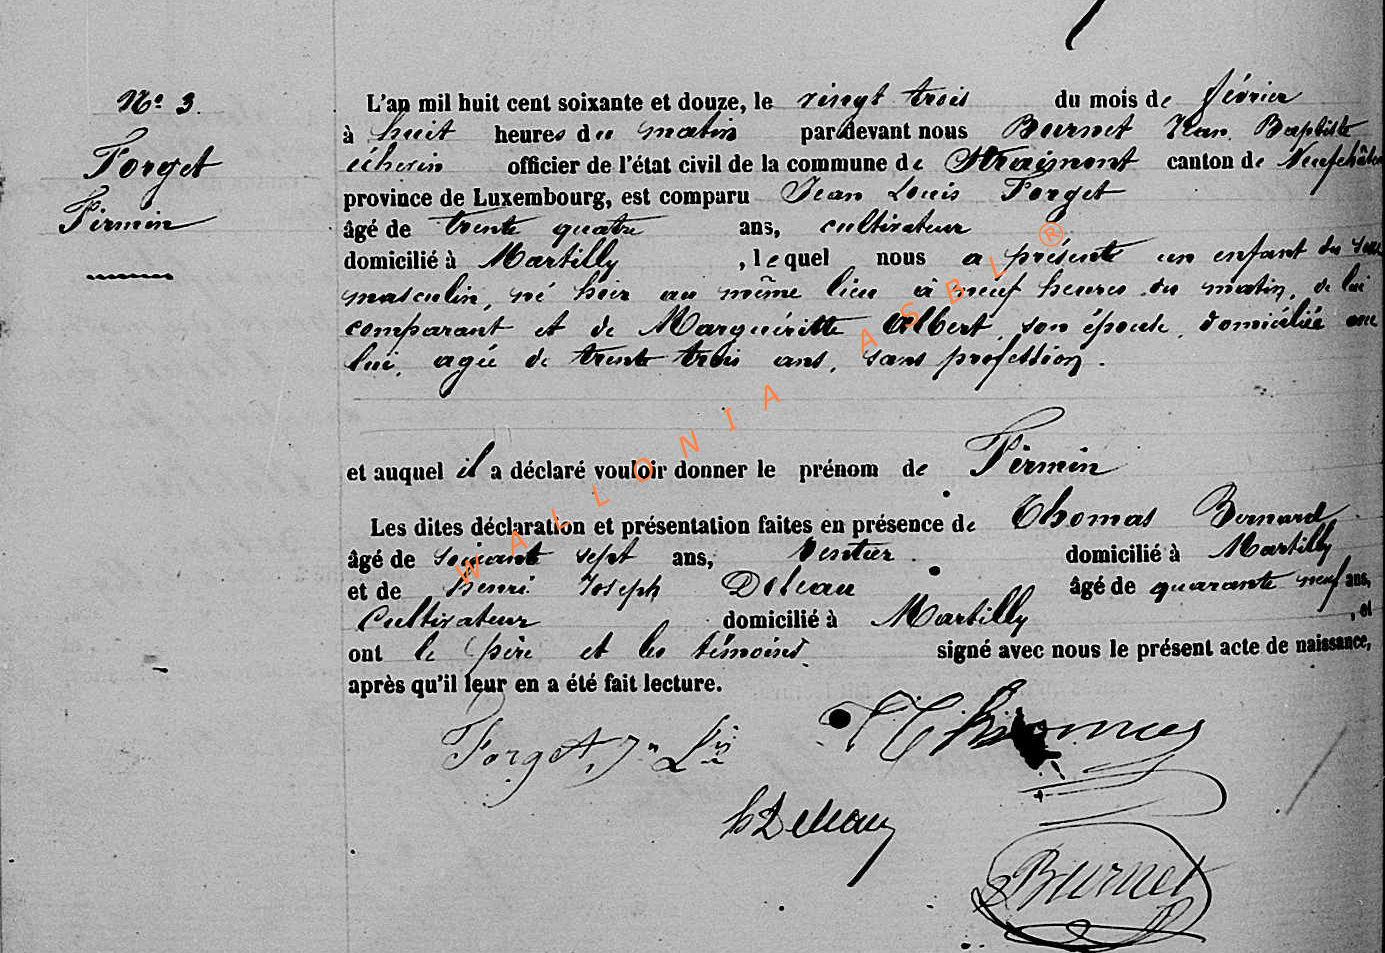 N° 3.
Forget
Firmin
L'an mil huit cent soixante et douze, le vingt trois du mois de février
à huit heures du matin pardevant nous Burnet Jean Baptiste
échevin officier de l'état civil de la commune de Straimont canton de Neufchâteau
province de Luxembourg, est comparu Jean Louis Forget
âgé de trente quatre ans, cultivateur
domicilié à Martilly , lequel nous a présenté un enfant du sexe
masculin, né hier au même lieu à neuf heures du matin, de lui
comparant et de Marguéritte Albert, son épouse, domiciliée avec
lui, agée de trente trois ans, sans profession.
et auquel il a déclaré vouloir donner le prénom de Firmin
Les dites déclaration et présentation faites en présence de Thomas Bernard
âgé de soixante sept ans, rentier domicilié à Martilly
et de Henri Joseph Deleau âgé de quarante neuf ans,
Cultivateur domicilié à Martilly , et
ont le père et les témoins signé avec nous le présent acte de naissance,
après qu'il leur en a été fait lecture.
Forget, Jn Ls
Thomas
h Deleau
Burnet
WALLONIA ASBL ®